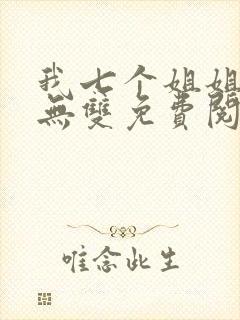 我七个姐姐
無雙免費閱
唯念此生